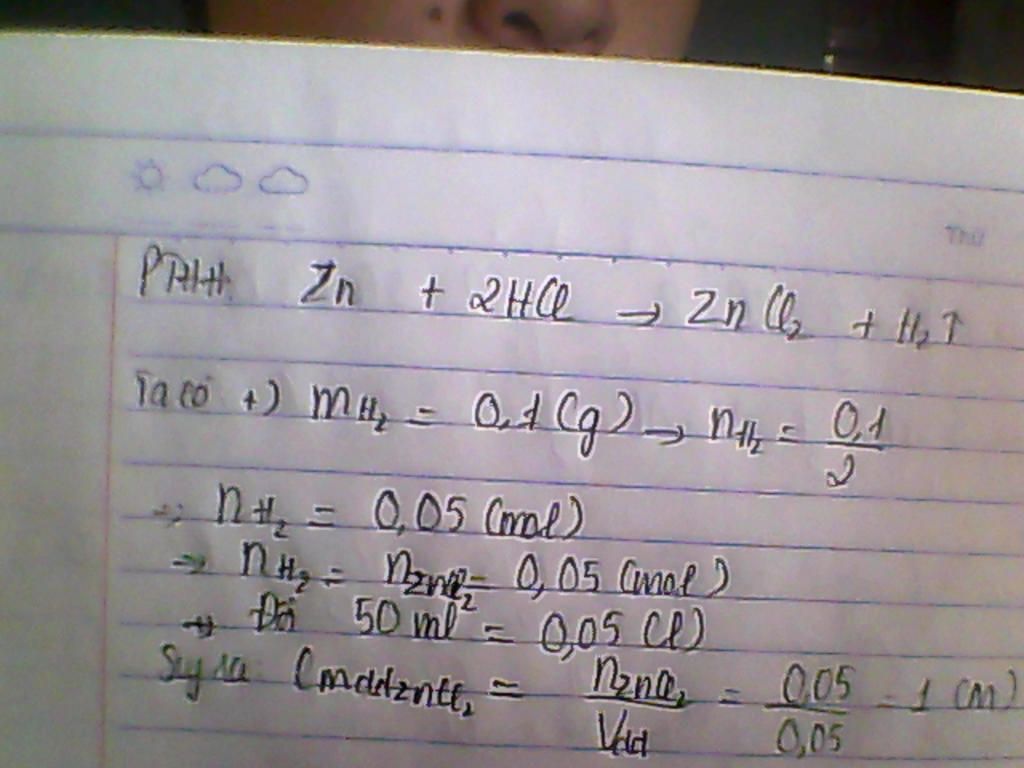 Thứ
PTHH: Zn + 2HCl → ZnCl₂ + H₂↑
Ta có +) mH₂ = 0,1 (g) → nH₂ = 0,1/2
→ nH₂ = 0,05 (mol)
→ nH₂ = nZnCl₂ = 0,05 (mol)
→ Đổi 50 ml = 0,05 (l)
Suy ra CmddZnCl₂ = nZnCl₂/Vdd = 0,05/0,05 = 1 (M)